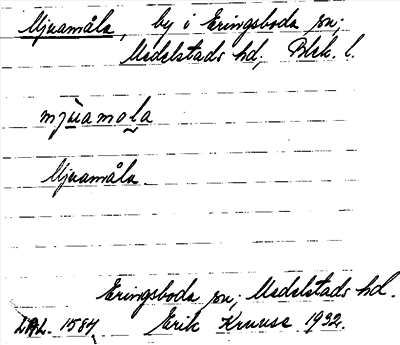 Mjuamåla, by i Eringsboda sn;
Medelstads hd, Blek. l.
mjùamola
Mjuamåla
Eringsboda sn; Medelstads hd.
LAL. 1584 Erik Kruuse 1932.